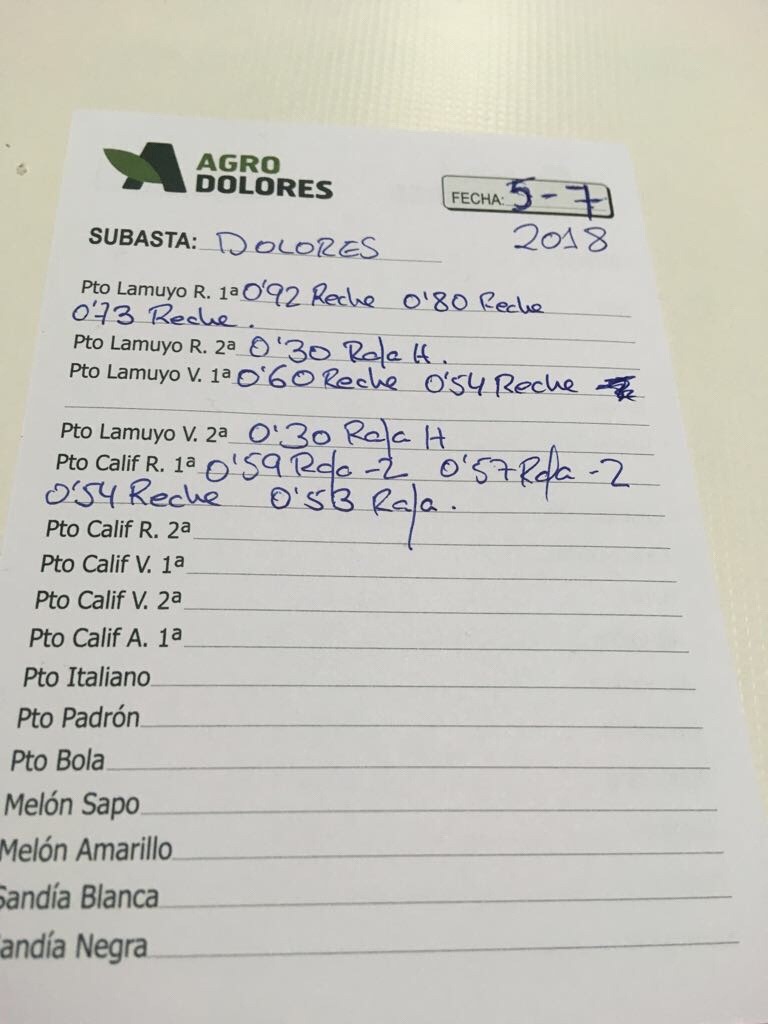 AGRO
DOLORES
FECHA: 5-7
2018
SUBASTA: DOLORES
Pto Lamuyo R. 1ª 0'92 Reche 0'80 Reche
0'73 Reche.
Pto Lamuyo R. 2ª 0'30 Raja H.
Pto Lamuyo V. 1ª 0'60 Reche 0'54 Reche
Pto Lamuyo V. 2ª 0'30 Raja H
Pto Calif R. 1ª 0'59 Raja -2 0'57 Raja -2
0'54 Reche 0'53 Raja.
Pto Calif R. 2ª
Pto Calif V. 1ª
Pto Calif V. 2ª
Pto Calif A. 1ª
Pto Italiano
Pto Padrón
Pto Bola
Melón Sapo
Melón Amarillo
Sandía Blanca
andía Negra